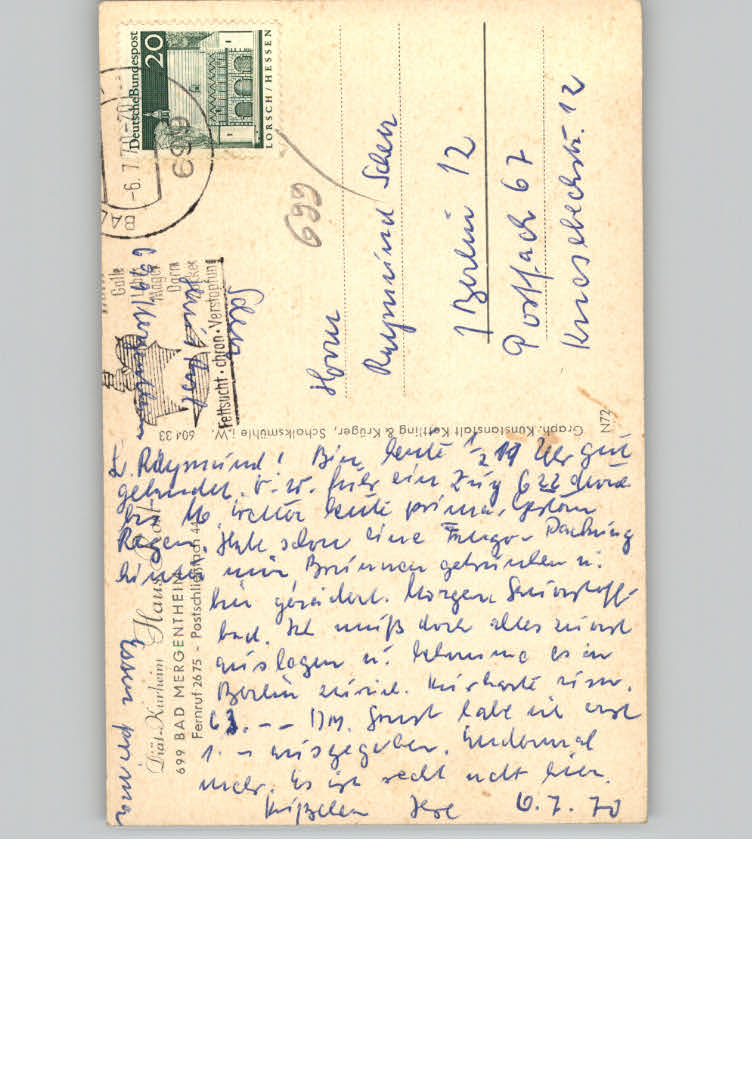 Deutsche Bundespost
20
LORSCH/HESSEN
BAD
-6.7.70-20
699
Galle
Leber
Magen
Darm
Zucker
Fettsucht · chron. Verstopfung
699
Herrn
Raymund Scherz
1 Berlin 12
Postfach 67
Knesebeckstr. 12
Graph. Kunstanstalt Kettling & Krüger, Schalksmühle i. W. 604 33
N72
Diät-Kurheim Haus
699 BAD MERGENTHEIM
Fernruf 2675 - Postschließfach 44
L. Raymund! Bin heute 1/2 Uhr gut
gelandet. hier ein Zug
bis 16. Wetter heute prima, gestern
Regen. Habe schon eine Fango-Packung
hinter mir Brunnen getrunken u.
bin geradelt. Morgen Sauerstoff-
bad. Ich muß doch alles zuerst
auslagen u. bekomme es in
Berlin zurück. Kurkarte
63.-- DM. Sonst habe ich erst
1.- ausgegeben. Eindermal
mehr. Es ist recht nett hier.
Küßchen Ilse 6.7.70
Essen prima
699 Mergentheim